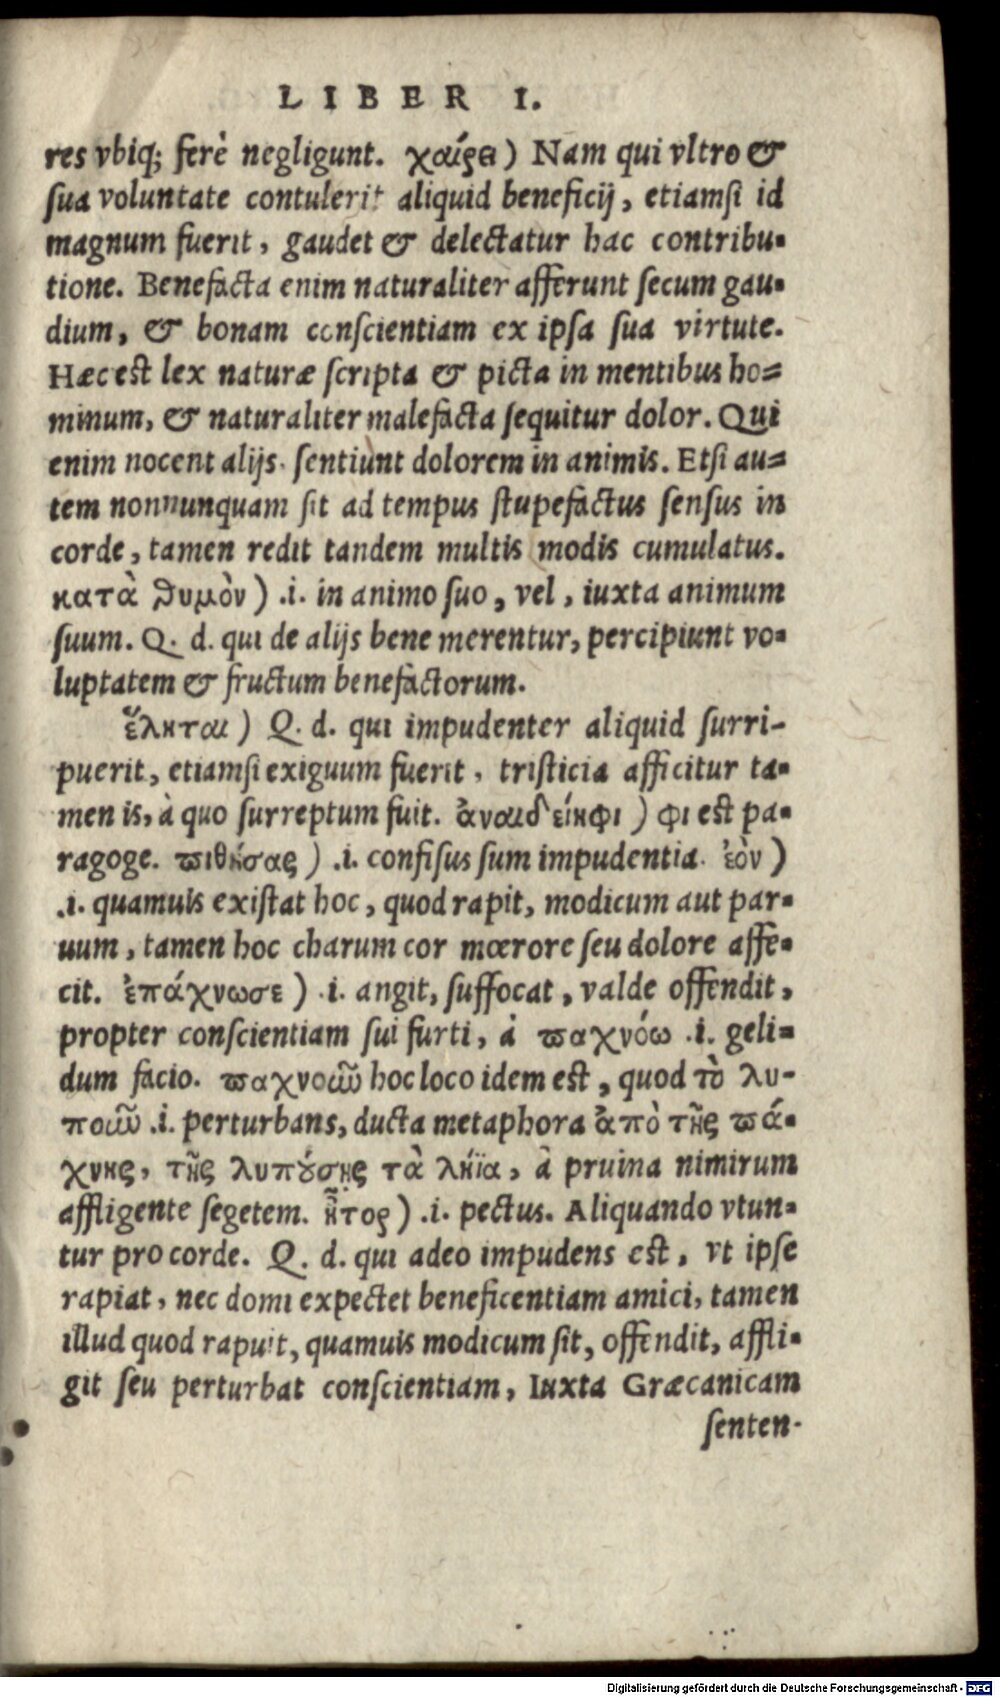 LIBER I.
res vbiq; ferè negligunt. χαίρει) Nam qui vltro &
sua voluntate contulerit aliquid beneficij, etiamsi id
magnum fuerit, gaudet & delectatur hac contribu-
tione. Benefacta enim naturaliter afferunt secum gau-
dium, & bonam conscientiam ex ipsa sua virtute.
Hæc est lex naturæ scripta & picta in mentibus ho-
minum, & naturaliter malefacta sequitur dolor. Qui
enim nocent alijs. sentiunt dolorem in animis. Etsi au-
tem nonnunquam sit ad tempus stupefactus sensus in
corde, tamen redit tandem multis modis cumulatus.
κατὰ θυμὸν) .i. in animo suo, vel, iuxta animum
suum. Q. d. qui de alijs bene merentur, percipiunt vo-
luptatem & fructum benefactorum.
ἕληται) Q. d. qui impudenter aliquid surri-
puerit, etiamsi exiguum fuerit, tristicia afficitur ta-
men is, à quo surreptum fuit. ἀναιδείηφι) φι est pa-
ragoge. πιθήσας) .i. confisus sum impudentia. ἐὸν)
.i. quamuis existat hoc, quod rapit, modicum aut par-
uum, tamen hoc charum cor mœrore seu dolore affe-
cit. ἐπάχνωσε) .i. angit, suffocat, valde offendit,
propter conscientiam sui furti, à παχνόω .i. geli-
dum facio. παχνοῶν hoc loco idem est, quod τὸ λυ-
ποῶν .i. perturbans, ducta metaphora ἀπὸ τῆς πά-
χνης, τῆς λυπούσης τὰ λήϊα, à pruina nimirum
affligente segetem. ἦτορ) .i. pectus. Aliquando vtun-
tur pro corde. Q. d. qui adeo impudens est, vt ipse
rapiat, nec domi expectet beneficentiam amici, tamen
illud quod rapuit, quamuis modicum sit, offendit, affli-
git seu perturbat conscientiam, Iuxta Græcanicam
senten-
Digitalisierung gefördert durch die Deutsche Forschungsgemeinschaft - DFG